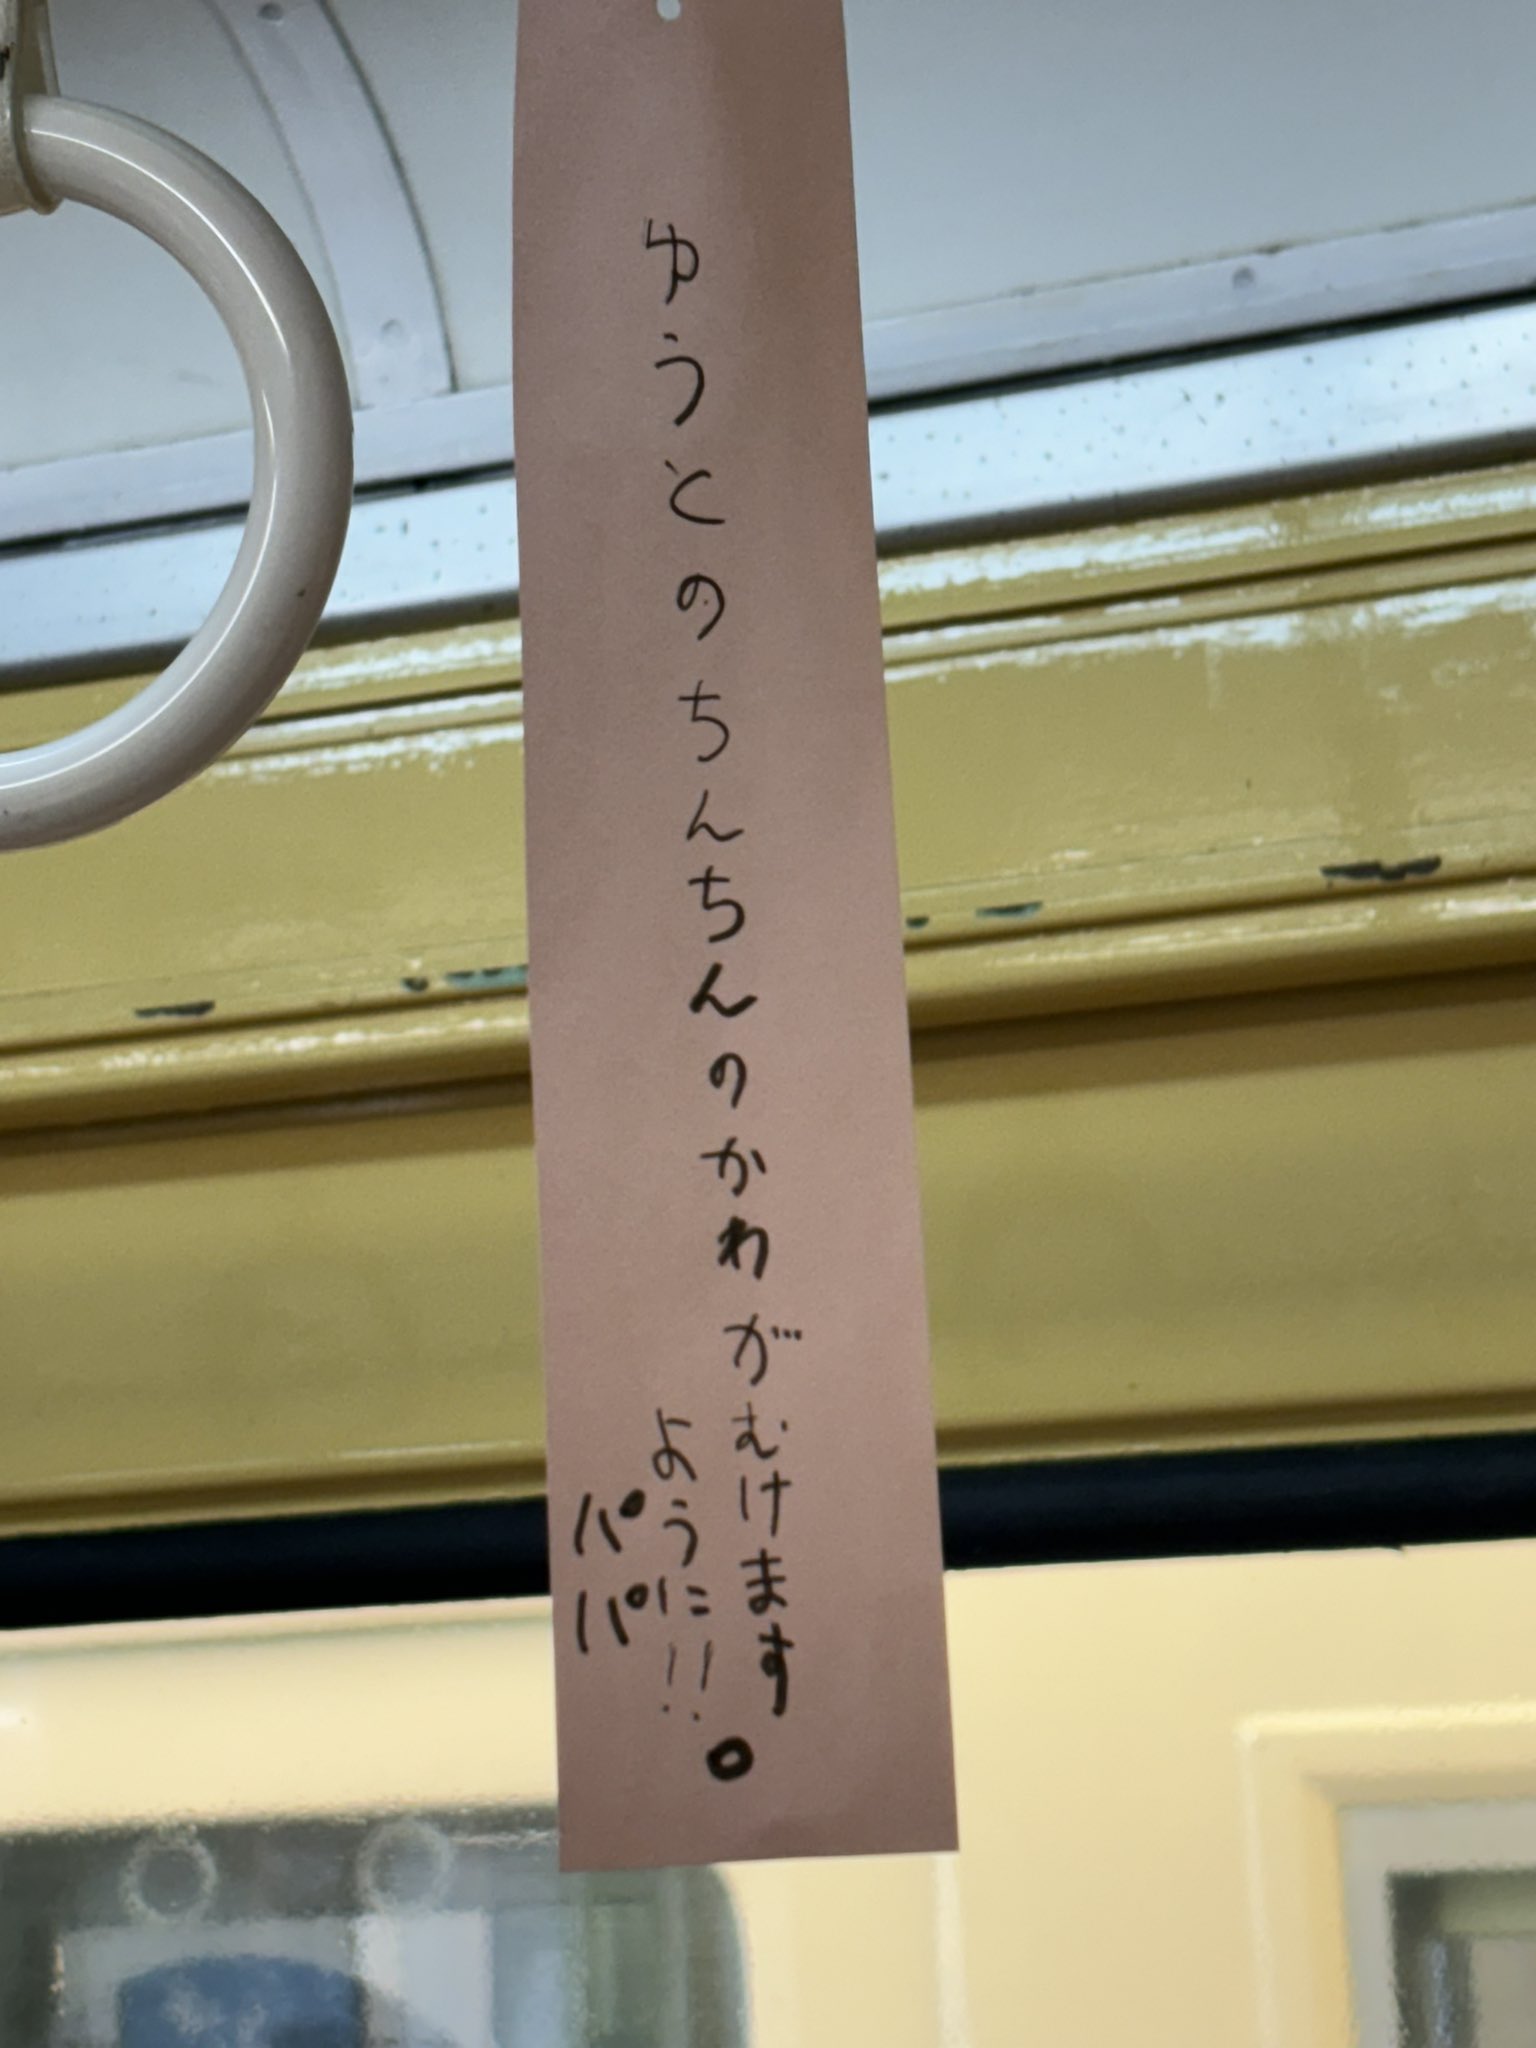 ゆうとのちんちんのかわがむけます
ように!!。
パパ